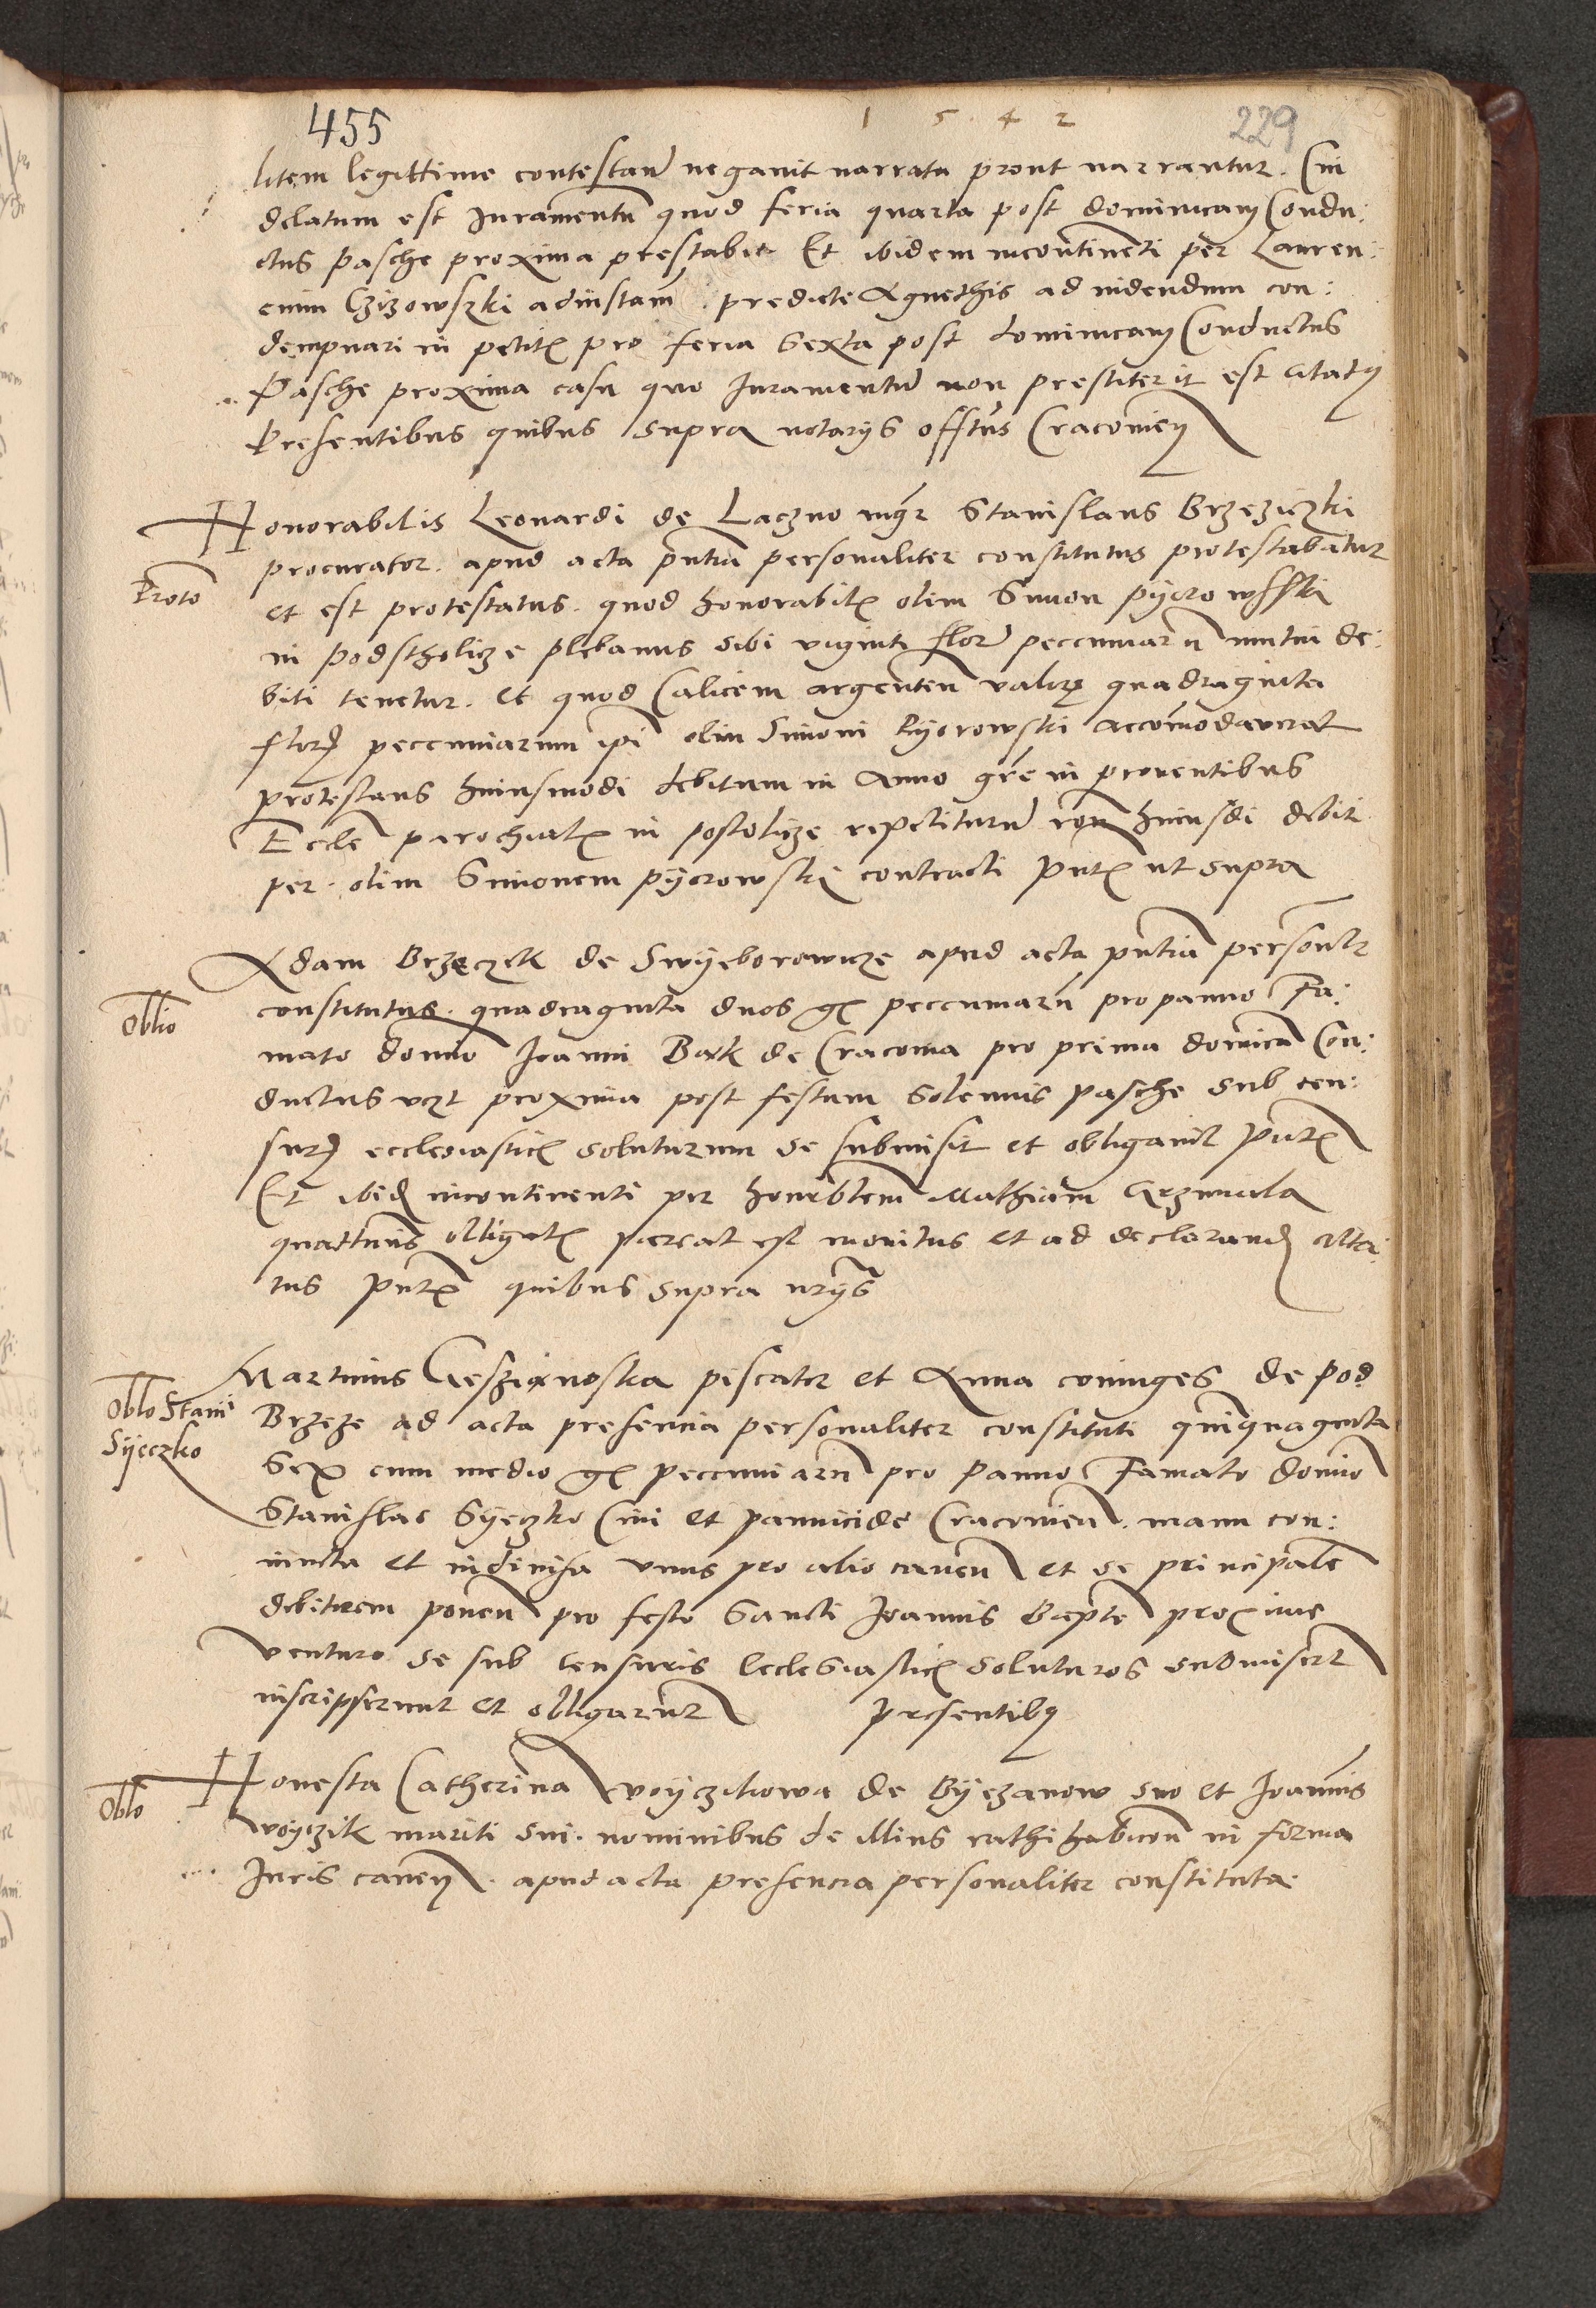 455
1 5 4 2
229
litem legittime contestan negavit narrata prout narrantur. Cui
delatum est Juramentu quod feria quarta post dominicam Condu:
ctus Pasche proxima prestabit Et ibidem incontinenti per Lauren:
cium Czizowszki ad instam predicte Agnethis ad videndum con:
dempnari in petit pro feria Sexta post dominicam Conductus
Pasche proxima casu quo Juramentu non prestiterit est citatus
Presentibus quibus supra notarys offtus Cracovien
Honorabilis Leonardi de Laczno mgr Stanislaus Brzeziczki
procurator. apud acta pntia personaliter constitutus protestabatur
Proto
et est protestatus. quod honorabil olim Simon pyerowsski
in podstholicze plebanus sibi viginti flor peccuniaru mutui de:
biti tenetur. et quod Calicem argenteu valor quadraginta
flor peccuniarum ipi olim Simoni Pyerowski accomodaverat
protestans huiusmodi debitum in Anno gre in proventibus
Eccle parochial in postolicze repetituru ron huiusdi debit
per olim Simonem pyerowski contracti Pntx ut supra
Adam Brzeczek de Swyeborowicze apud acta pntia personlr
Oblio
constitutus. quadraginta duos gr peccuniaru pro panno Fa:
mato domno Joanni Bark de Cracovia pro prima dominica Con:
ductus vczt proxima post festum solennis pasche sub cen:
sur ecclesiastic soluturum se submisit et obligavit Pntx
Et ibid incontinenti per honorblem Mathiam Grzmiala
quattenus obligat pareat est monitus et ad declarand citta:
tus Pntx quibus supra nrys
Martinus piscator et Anna coniuges de pod
Oblo Stani
Syeczko
Brzeze ad acta presencia personaliter constituti quinquaginta
Sex cum medio gr peccuniaru pro panno Famato domno
Stanislao Syeczko Civi et pannicide Cracovien. manu con:
iuncta et indivisa unus pro alio caven et se principale
debitorem ponen pro festo Sancti Joannis Bapte proxime
venturo se sub Censuris Ecclesiastic soluturos submisert
inscripserunt et obligarunt Presentibus
Honesta Catherina Woyczikowa de Byezanow suo et Joannis
Oblo
Woyczik mariti sui. nominibus de illius rathihabicon in forma
Juris caven. apud acta presencia personaliter constituta